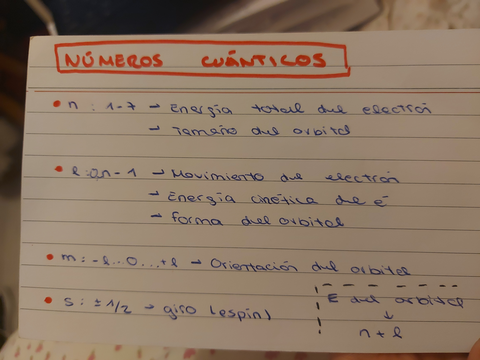 NÚMEROS CUÁNTICOS
• n : 1-7 → Energía total del electrón
→ Tamaño del orbital
• l : 0,n-1 → Movimiento del electrón
→ Energía cinética de é
→ Forma del orbital
• m : -l..0...+l → Orientación del orbital
• s : ± 1/2 → giro (espín)
E del orbital
↓
n + l